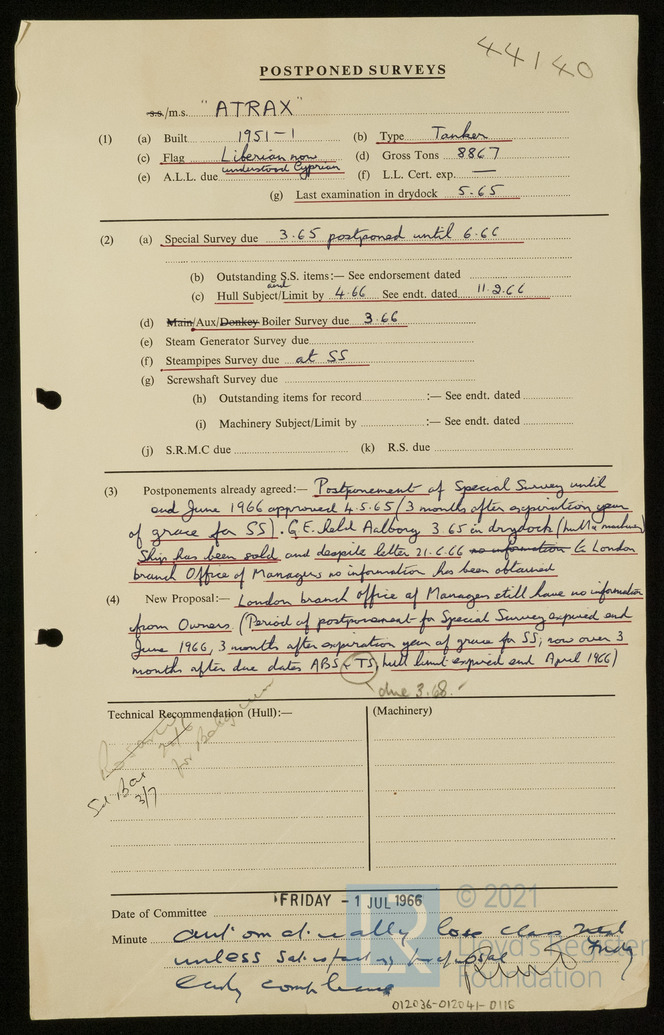 44140
POSTPONED SURVEYS
s.s./m.s. "ATRAX"
(1) (a) Built 1951-1 (b) Type Tanker
(c) Flag Liberian now understood Cyprian (d) Gross Tons 8867
(e) A.L.L. due (f) L.L. Cert. exp. —
(g) Last examination in drydock 5.65
(2) (a) Special Survey due 3.65 postponed until 6.66
(b) Outstanding S.S. items:— See endorsement dated
(c) Hull Subject/and Limit by 4.66 See endt. dated 11.2.66
(d) Main/Aux/Donkey Boiler Survey due 3.66
(e) Steam Generator Survey due
(f) Steampipes Survey due at SS
(g) Screwshaft Survey due
(h) Outstanding items for record :— See endt. dated
(i) Machinery Subject/Limit by :— See endt. dated
(j) S.R.M.C due (k) R.S. due
(3) Postponements already agreed:— Postponement of Special Survey until
end June 1966 approved 4.5.65 (3 months after expiration year
of grace for SS). G.E. held Aalborg 3.65 in drydock (hull &
Ship has been sold and despite letter 21.6.66 no information to London
branch Office of Managers no information has been obtained
(4) New Proposal:— London branch office of Managers still have no information
from Owners. (Period of postponement for Special Survey expired end
June 1966, 3 months after expiration year of grace for SS; now over 3
months after due dates ABS & TS, hull limit expired end April 1966)
due 3.68.
Technical Recommendation (Hull):— (Machinery)
3/7
FRIDAY - 1 JUL 1966
Date of Committee
Minute automatically lose class next Friday
unless satisfactory proposal
early compliance
© 2021
Lloyd's Register
Foundation
LR
012036-012041-0115